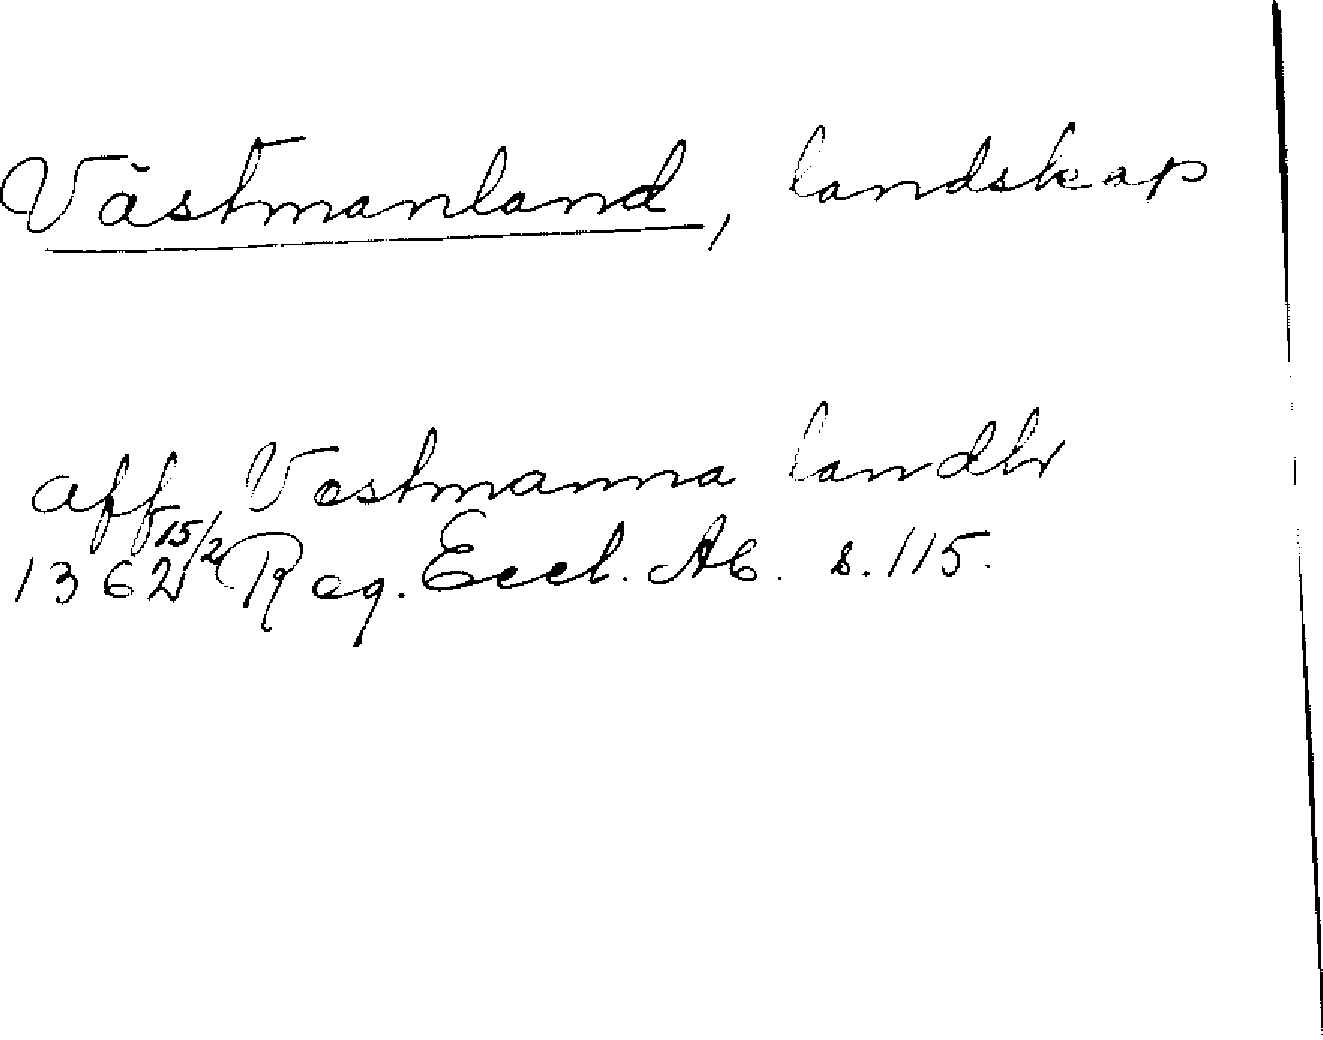 Västmanland, landskap
aff Vestmanna landh
1362 15/2 Reg. Eccl. Ab. s. 115.